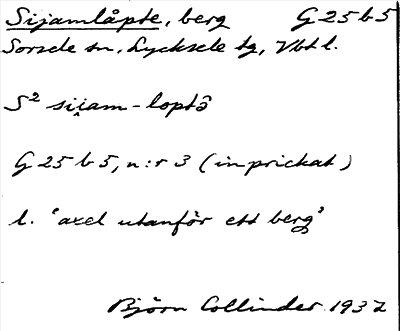 Sijamlåpte, berg G 25 b 5
Sorsele sn, Lycksele tg, Vbtl.
S² sii̯am-loptō̂
G 25 b 5, n:r 3 (inprickat)
l. 'axel utanför ett berg'
Björn Collinder 1937